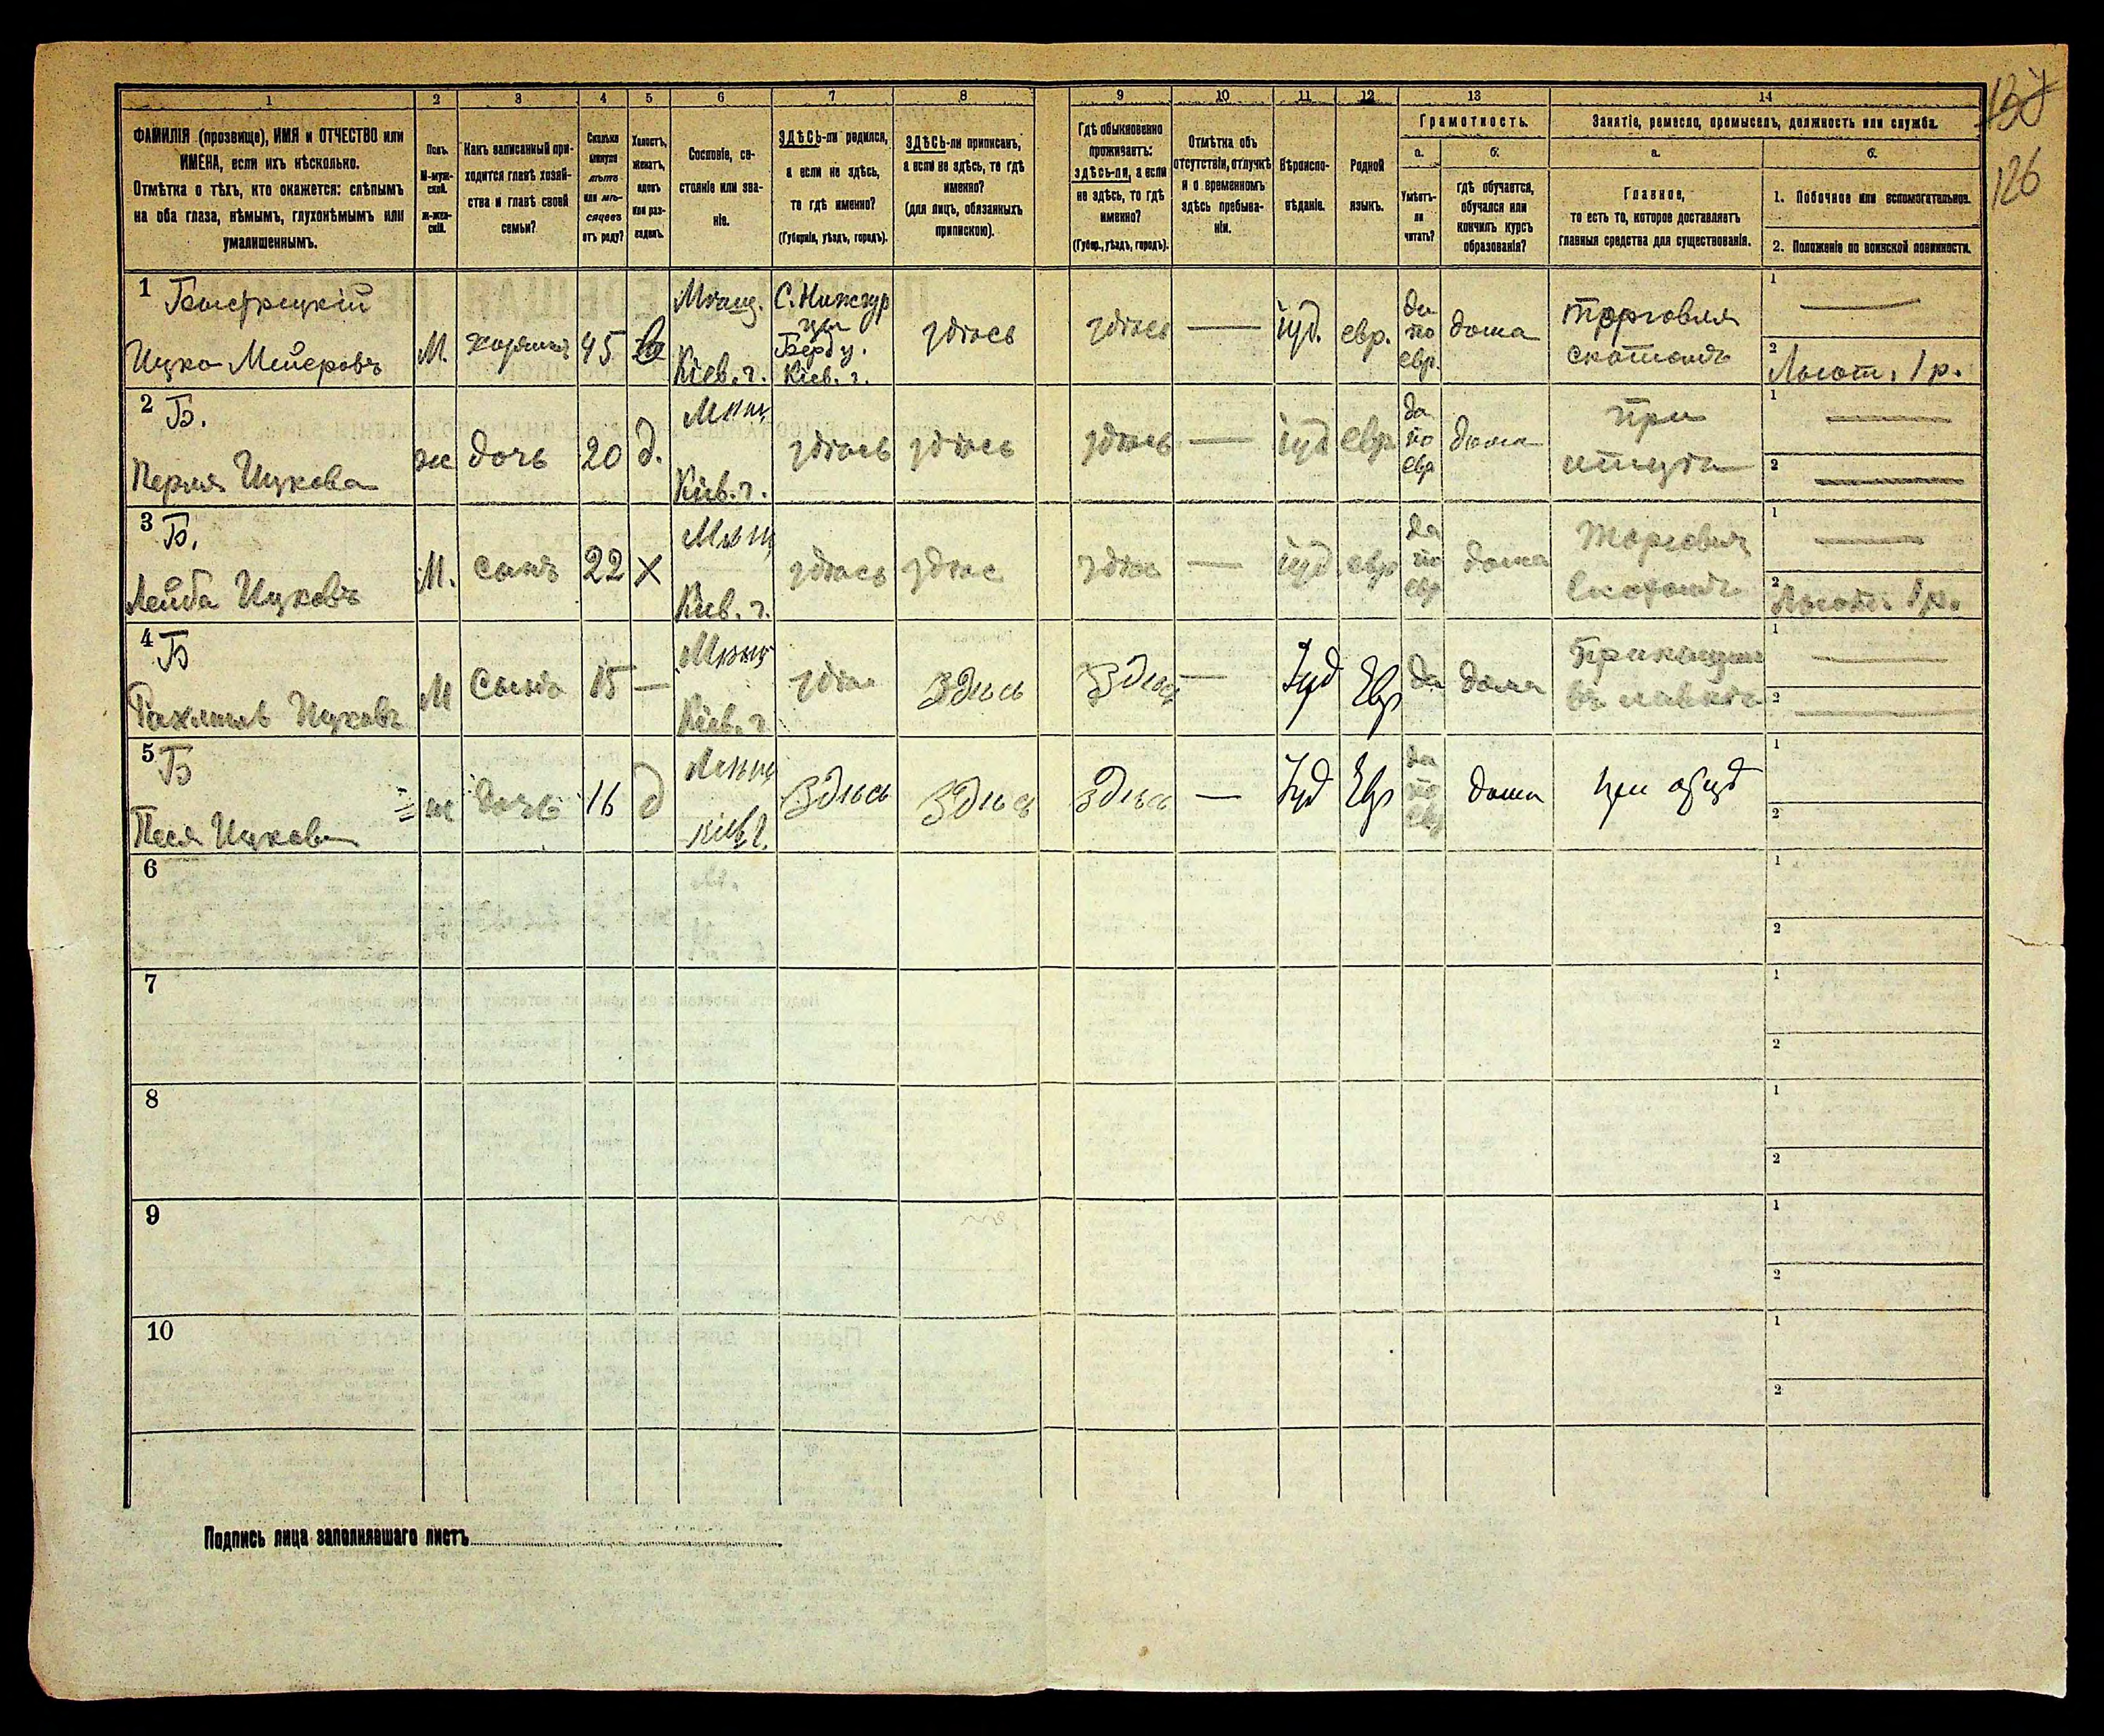 137
126
1
2
3
4
5
6
7
8
9
10
11
12
13
14
ФАМИЛІЯ (прозвище), ИМЯ и ОТЧЕСТВО или
ИМЕНА, если ихъ нѣсколько.
Отмѣтка о тѣхъ, кто окажется: слѣпымъ
на оба глаза, нѣмымъ, глухонѣмымъ или
умалишеннымъ.
Полъ.
М-муж-
ской.
Ж-жен-
скій.
Какъ записанный при-
ходится главѣ хозяй-
ства и главѣ своей
семьи?
Сколько
минуло
лѣтъ
или мѣ-
сяцевъ
отъ роду?
Холостъ,
женатъ,
вдовъ
или раз-
веденъ.
Сословіе, со-
стояніе или зва-
ніе.
ЗДѢСЬ-ли родился,
а если не здѣсь,
то гдѣ именно?
(Губернія, уѣздъ, городъ).
ЗДѢСЬ-ли приписанъ,
а если не здѣсь, то гдѣ
именно?
(для лицъ, обязанныхъ
припискою).
Гдѣ обыкновенно
проживаетъ:
здѣсь-ли, а если
не здѣсь, то гдѣ
именно?
(Губер., уѣздъ, городъ).
Отмѣтка объ
отсутствіи, отлучкѣ
и о временномъ
здѣсь пребыва-
ніи.
Вѣроиспо-
вѣданіе.
Родной
языкъ.
Грамотность.
а.
б.
Умѣетъ-
ли
читать?
гдѣ обучается,
обучался или
кончилъ курсъ
образованія?
Занятіе, ремесло, промыселъ, должность или служба.
а.
б.
Главное,
то есть то, которое доставляетъ
главныя средства для существованія.
1. Побочное или вспомогательное.
2. Положеніе по воинской повинности.
1
Быстрицкій
Ицко Мейеровъ
М.
хозяинъ
45
в
Мѣщ.
Кіев. г.
С. Нижгур
цы
Берд у.
Кіев. г.
здѣсь
здѣсь
іуд.
евр.
да
по
евр.
дома
торговля
скотомъ
1
2
1 р.
2
Б.
Перля Ицкова
ж
дочь
20
д.
Мѣщ
Кіев. г.
здѣсь
здѣсь
здѣсь
іуд
евр
да
по
евр
дома
при
отцѣ
1
2
3
Б.
Лейба Ицковъ
М.
сынъ
22
х
Мѣщ
Кіев. г.
здѣсь
здѣс
здѣс
іуд.
евр
да
по
евр
дома
Торговля
скотомъ
1
2
1 р.
4
Б
Рахмиль Ицковъ
М
Сынъ
15
Мѣщ
Кіев. г.
здѣс
здѣсь
здѣсь
Іуд
Евр
да
дома
Прикащик
въ лавкѣ
1
2
5
Б
Песя Ицкова
ж
дочь
16
д
Мѣщ
Кіев г.
здѣсь
здѣсь
здѣсь
Іуд
Евр
да
по
евр
дома
при отцѣ
1
2
6
1
2
7
1
2
8
1
2
9
1
2
10
1
2
Подпись лица заполнявшаго листъ